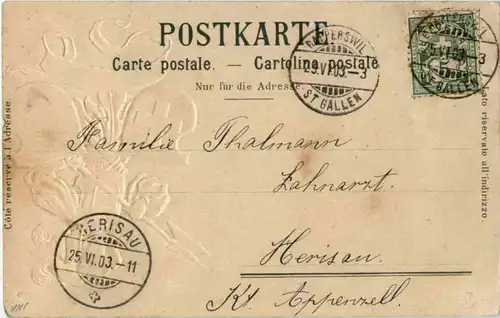 POSTKARTE
Carte postale. — Cartolina postale
Nur für die Adresse
Côté réservé à l'Adresse.
Lato riservato all'indirizzo.
RAPPERSWIL
25.VI.03.–3
ST GALLEN
RAPPERSWIL
25.VI.03.–3
ST GALLEN
Familie Thalmann
Zahnarzt.
Herisau.
Kt. Appenzell.
HERISAU
25.VI.03.–11